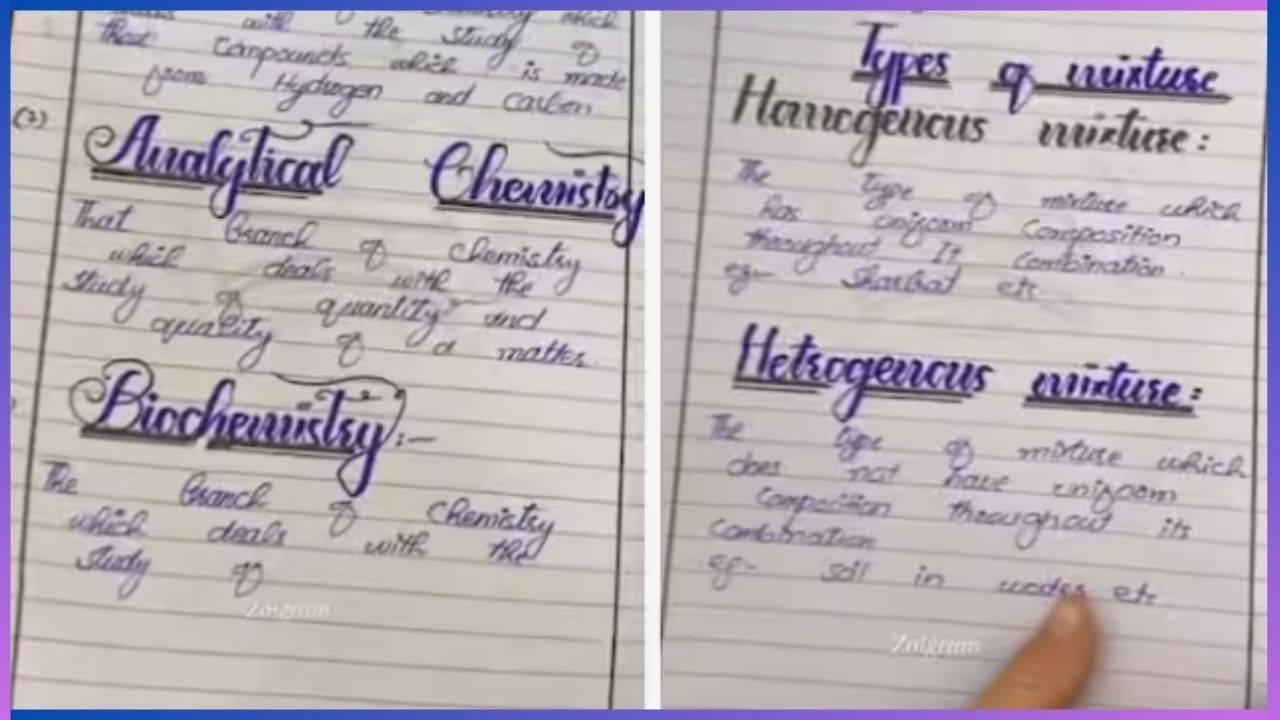 with the study of
those compounds which is made
from Hydrogen and carbon
(2)
Analytical Chemistry
That branch of chemistry
which deals with the
study of quantity and
quality of a matter.
Biochemistry:-
The branch of chemistry
which deals with the
study of
Zalgram
Types of mixture
Homogenous mixture:
The type of mixture which
has uniform composition
throughout It combination.
eg- Sharbat etc
Hetrogenous mixture:
The type of mixture which
does not have uniform
composition throughout its
combination
eg- soil in water etc
Zalgram